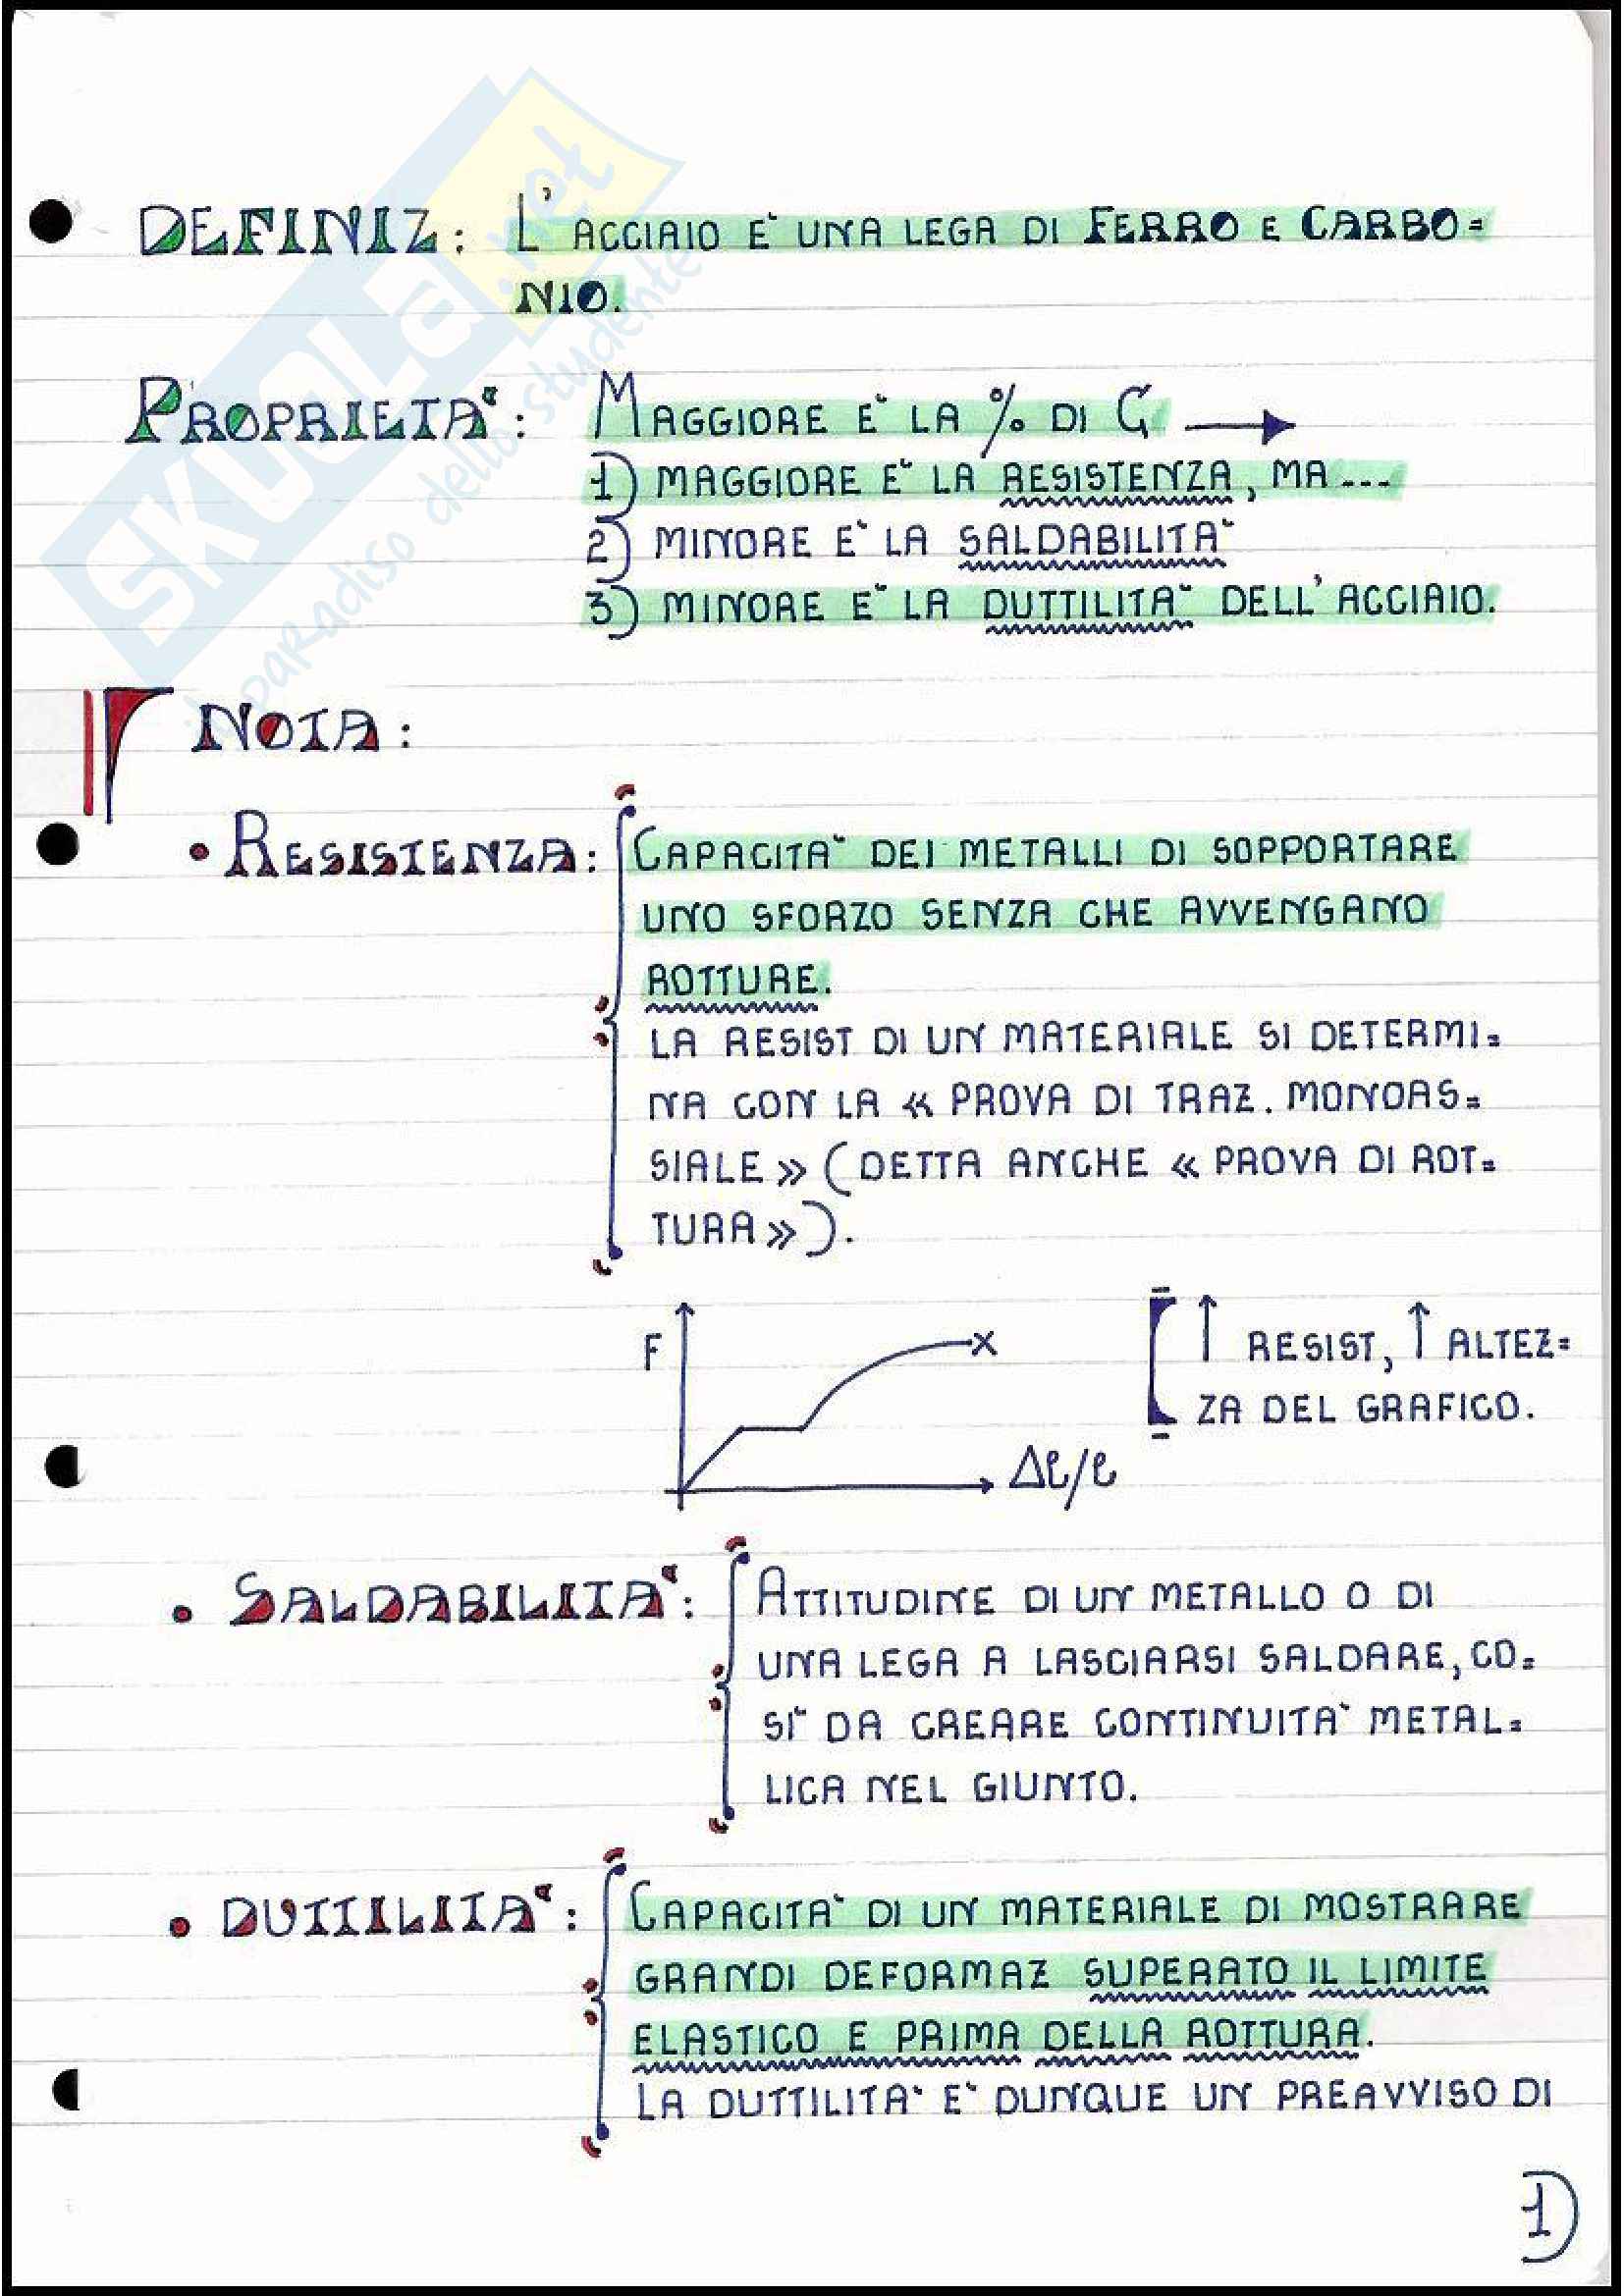 SKUOLA.net
il paradiso dello studente
DEFINIZ: L'ACCIAIO E' UNA LEGA DI FERRO E CARBO=
NIO.
PROPRIETA': MAGGIORE E' LA % DI C →
1) MAGGIORE E' LA RESISTENZA, MA ---
2) MINORE E' LA SALDABILITA'
3) MINORE E' LA DUTTILITA' DELL'ACCIAIO.
NOTA:
• RESISTENZA: CAPACITA' DEI METALLI DI SOPPORTARE
UNO SFORZO SENZA CHE AVVENGANO
ROTTURE.
LA RESIST DI UN MATERIALE SI DETERMI=
NA CON LA « PROVA DI TRAZ. MONOAS=
SIALE » (DETTA ANCHE « PROVA DI ROT=
TURA »).
F
x
Δl/l
↑ RESIST, ↑ ALTEZ=
ZA DEL GRAFICO.
• SALDABILITA': ATTITUDINE DI UN METALLO O DI
UNA LEGA A LASCIARSI SALDARE, CO=
SI' DA CREARE CONTINUITA' METAL=
LICA NEL GIUNTO.
• DUTTILITA': CAPACITA' DI UN MATERIALE DI MOSTRARE
GRANDI DEFORMAZ SUPERATO IL LIMITE
ELASTICO E PRIMA DELLA ROTTURA.
LA DUTTILITA' E' DUNQUE UN PREAVVISO DI
1)